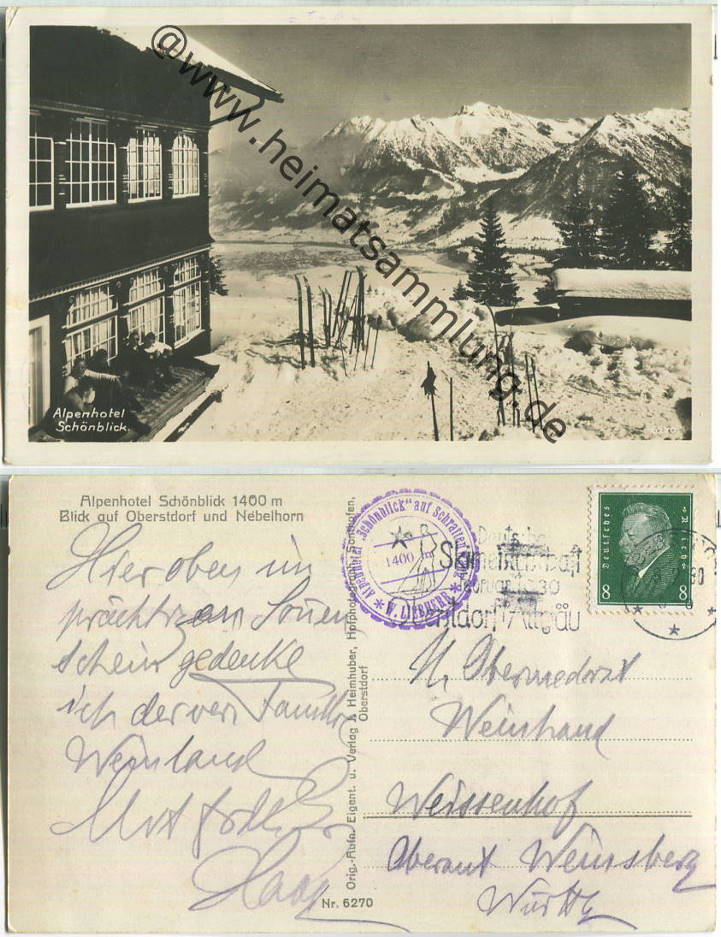 @www.heimatsammlung.de
Alpenhotel
Schönblick.
Alpenhotel Schönblick 1400 m
Blick auf Oberstdorf und Nebelhorn
Hier oben im
Sonnen
schein gedenke
ich der Familie
Weinland
Mit
Haag
Orig.-Aufn. Eigent. u. Verlag J. Heimhuber, Hofphotograph, Sonthofen,
Oberstdorf
Nr. 6270
Alpenhotel „Schönblick" auf
1400 m
Deutsche
1930
Allgäu
Deutsches Reich
8 8
H. Obermedrzt
Weinland
Weissenhof
Oberamt Weinsberg
Württbg